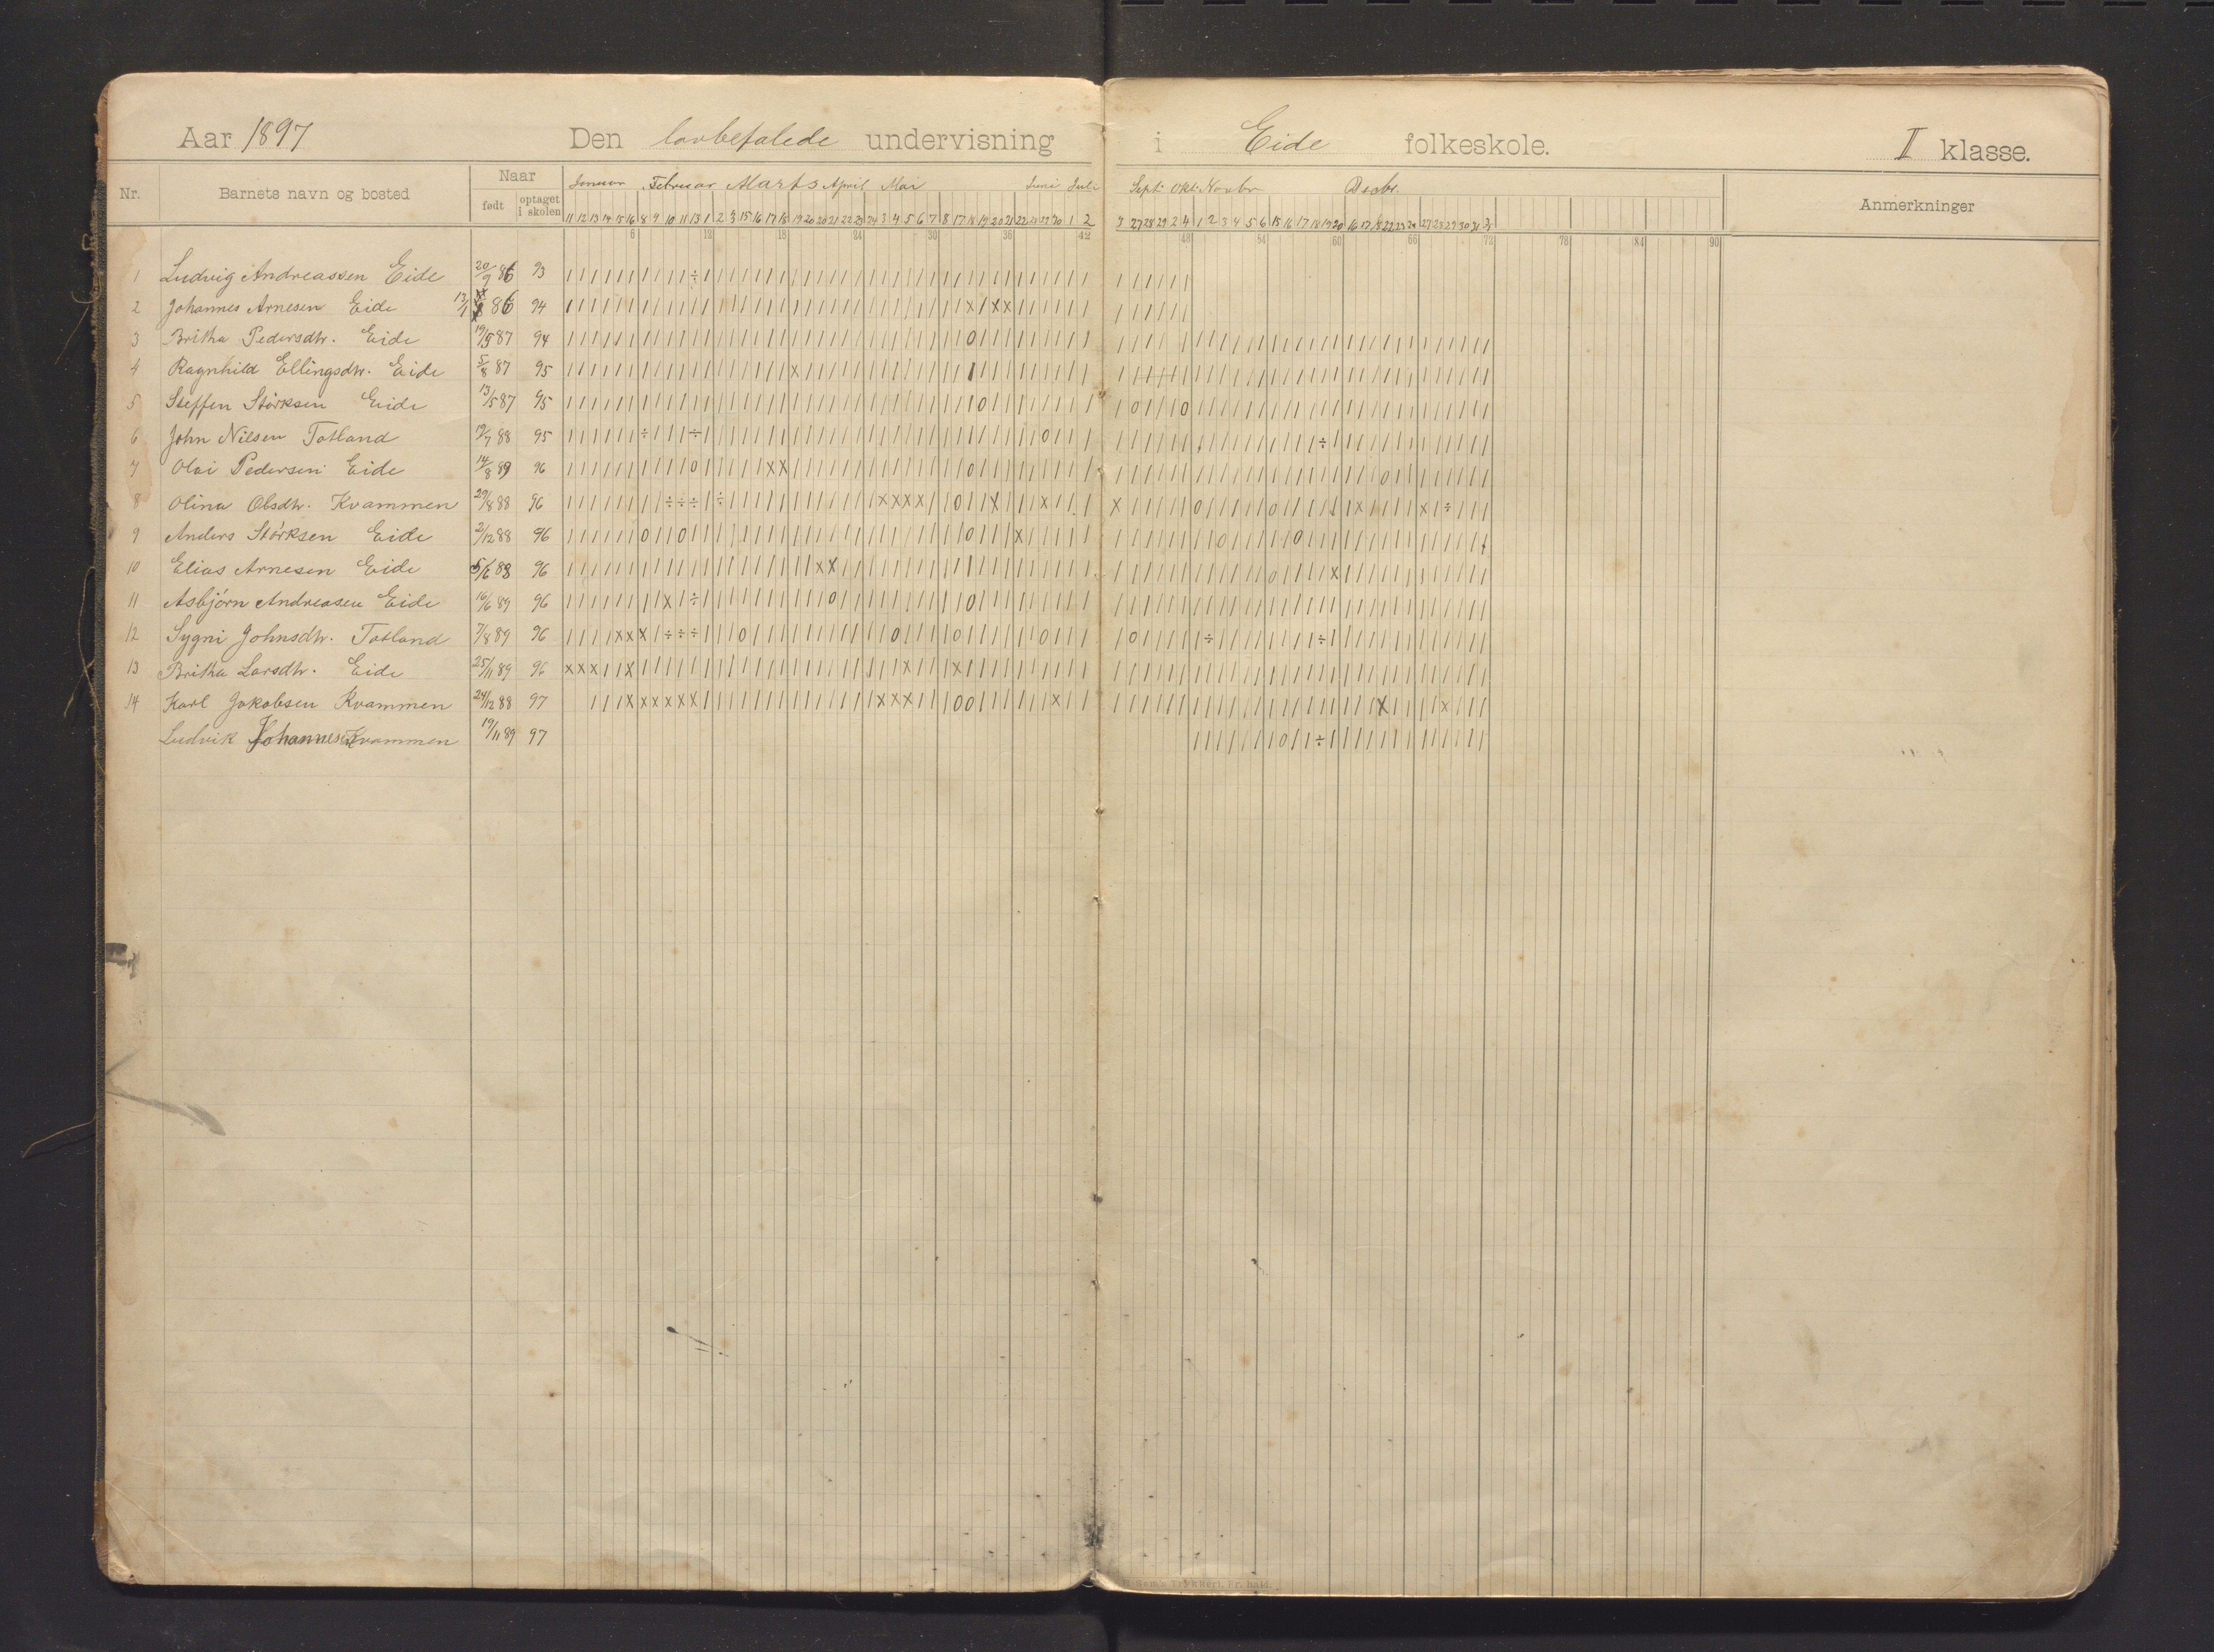 Aar 1897 Den lovbefalede undervisning i Eide folkeskole. II klasse.
Nr. Barnets navn og bosted Naar født optaget i skolen Januar Februar Marts April Mai Juni Juli Sept. Okt. Novbr Decbr. Anmerkninger
11 12 13 14 15 16 8 9 10 11 13 1 2 3 15 16 17 18 19 20 21 22 23 24 3 4 5 6 7 8 17 18 19 20 21 22 28 29 30 1 2 3 27 28 29 2 4 1 2 3 4 5 6 15 16 17 18 19 20 16 17 18 22 23 24 27 28 29 30 31
6 12 18 24 30 36 42 48 54 60 66 72 78 84 90
1 Ludvig Andreassen Eide 20/9 86 93 | | | | | | | | | | ÷ | | | | | | | | | | | | | | | | | | | | | | | | | | | | | | | | | | | | |
2 Johannes Arnesen Eide 13/1 86 94
3 Britha Pedersdtr. Eide 19/5 87 94
4 Ragnhild Ellingsdtr. Eide 5/8 87 95
5 Steffen Störksen Eide 13/5 87 95
6 John Nilsen Totland 19/7 88 95
7 Olai Pedersen Eide 14/8 89 96
8 Olina Olsdtr. Kvammen 29/8 88 96
9 Anders Störksen Eide 2/12 88 96
10 Elias Arnesen Eide 5/6 88 96
11 Asbjörn Andreasen Eide 16/6 89 96
12 Sygni Johnsdtr. Totland 7/8 89 96
13 Britha Larsdtr. Eide 25/11 89 96
14 Karl Jakobsen Kvammen 24/12 88 97
Ludvik Johannesen Kvammen 19/11 89 97